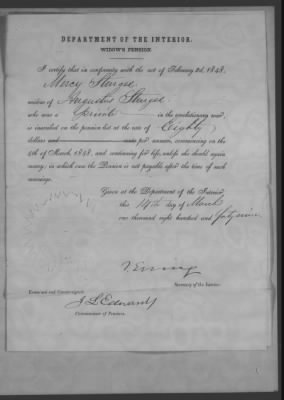 DEPARTMENT OF THE INTERIOR.
WIDOW'S PENSION
I certify that in conformity with the act of February 2d, 1848,
Mercy Sturges
widow of Augustus Sturges
who was a private in the revolutionary war,
is inscribed on the pension list at the rate of Eighty
dollars and cents per annum, commencing on the
4th of March, 1848, and continuing for life, unless she should again
marry, in which case the Pension is not payable after the time of such
marriage.
Given at the Department of the Interior,
this 14th day of March
one thousand eight hundred and forty nine
T. Ewing
Secretary of the Interior.
Examined and Countersigned,
J L Edwards
Commissioner of Pensions.